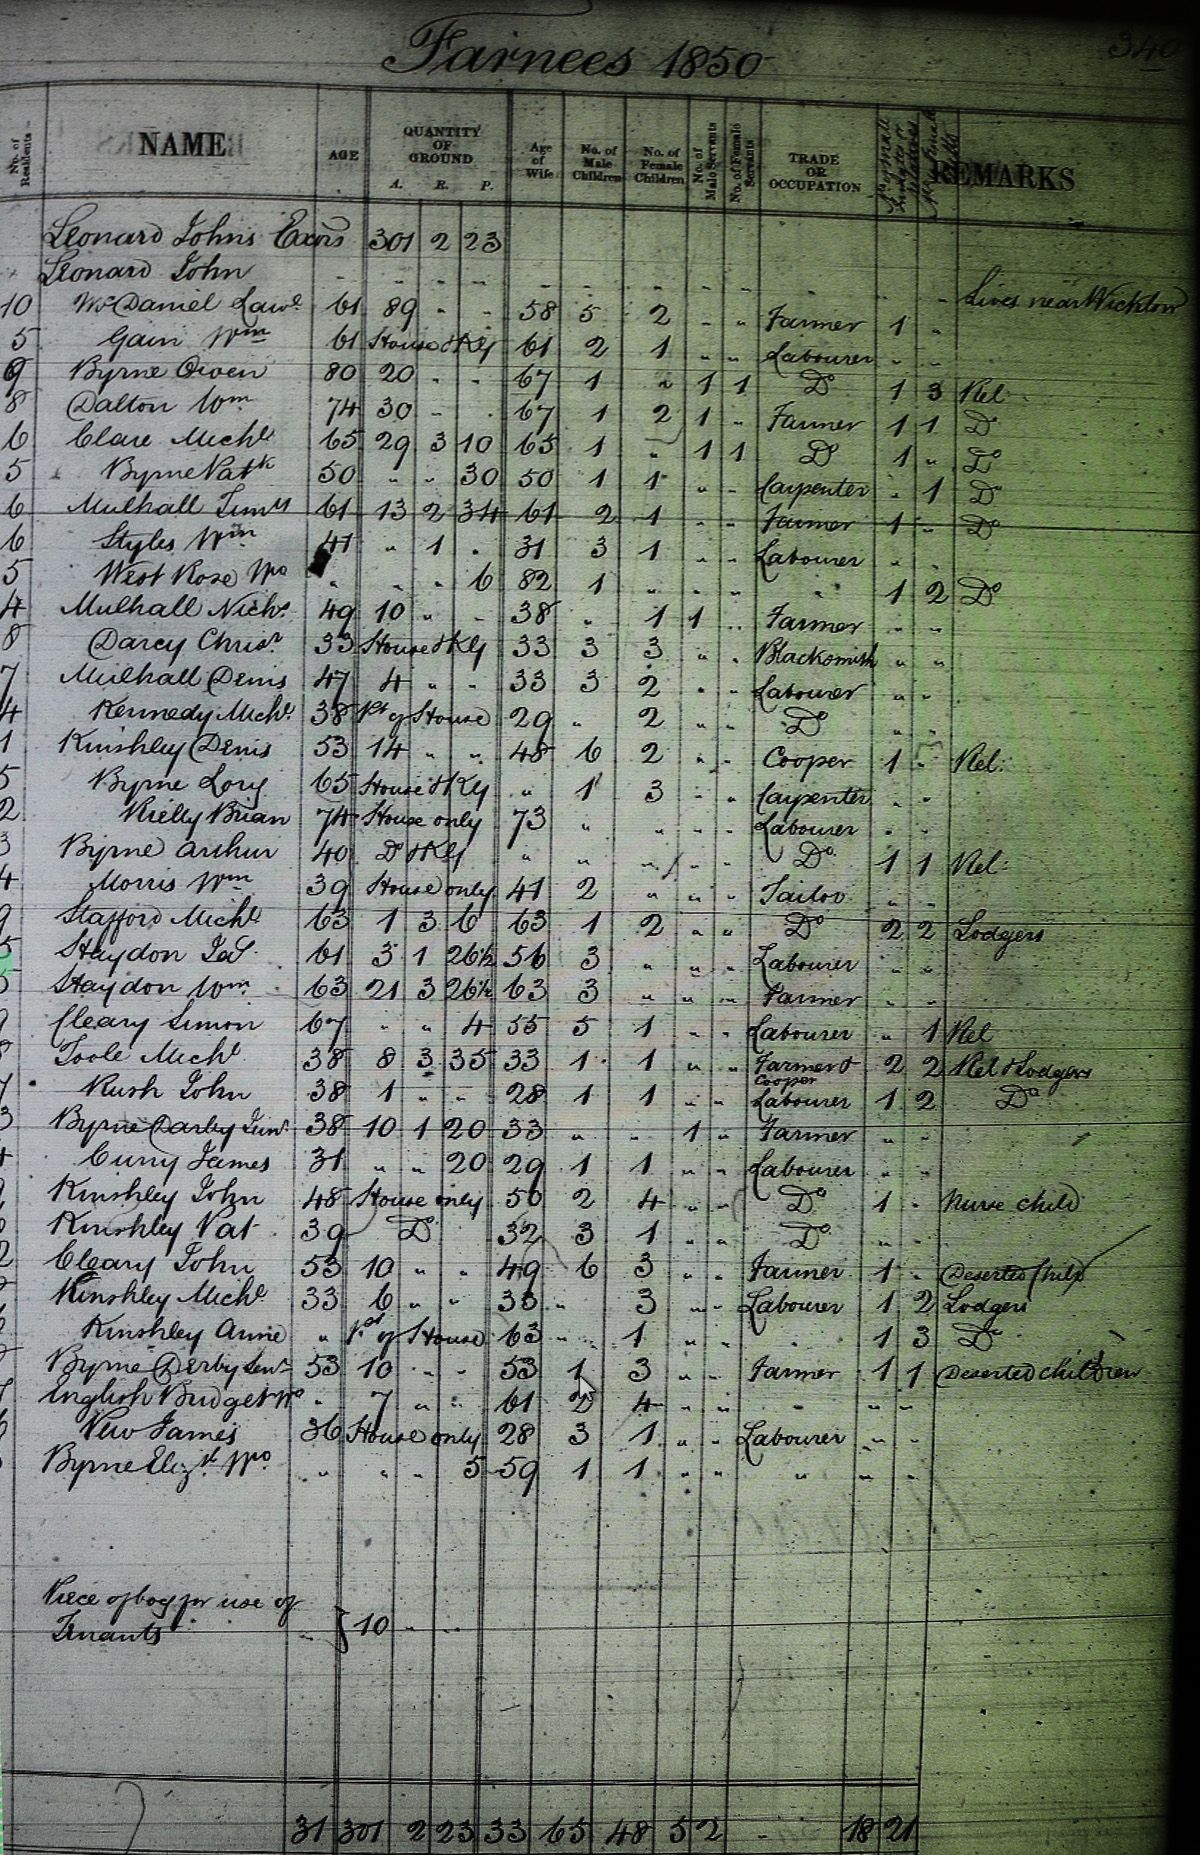 Farnees 1850
340
No. of Residents NAME AGE QUANTITY OF GROUND A. R. P. Age of Wife No. of Male Children No. of Female Children No. of Male Servants No. of Female Servants TRADE OR OCCUPATION REMARKS
Leonard Johns Exors 301 2 23
Leonard John " " " " " " " " " " " Lives near Wicklow
10 McDaniel Lawe 61 89 " " 58 5 2 " " Farmer 1 "
5 Gain Wm 61 House & Kg 61 2 1 " " Labourer " "
9 Byrne Owen 80 20 " " 67 1 " 1 1 Do 1 3 Rel:
8 Dalton Wm 74 30 " " 67 1 2 1 " Farmer 1 1 Do
6 Clare Michl 65 29 3 10 65 1 " 1 1 Do 1 " Do
5 Byrne Patk 50 " " 30 50 1 1 " " Carpenter " 1 Do
6 Mulhall 61 13 2 34 61 2 1 " " Farmer 1 " Do
6 Styles Wm 41 " 1 " 31 3 1 " " Labourer " "
5 West Rose Wo " " " 6 82 1 " " " " 1 2 Do
4 Mulhall Nichs 49 10 " " 38 " 1 1 " Farmer " "
8 Darcy Chrisr 33 House & Kg 33 3 3 " " Blacksmith " "
7 Mulhall Denis 47 4 " " 33 3 2 " " Labourer " "
4 Kennedy Michl 38 Pt of House 29 " 2 " " Do " "
1 Kinshley Denis 53 14 " " 48 6 2 " " Cooper 1 " Rel:
5 Byrne Lory 65 House & Kg " 1 3 " " Carpenter " "
2 Rielly Brian 74 House only 73 " " " " Labourer " "
3 Byrne Arthur 40 Do & Kg " " " " " Do 1 1 Rel:
4 Morris Wm 39 House only 41 2 " " " Tailor " "
9 Stafford Michl 63 1 3 6 63 1 2 " " Do 2 2 Lodgers
5 Haydon Jas 61 3 1 26½ 56 3 " " " Labourer " "
5 Haydon Wm 63 21 3 26½ 63 3 " " " Farmer " "
9 Cleary Simon 67 " " 4 55 5 1 " " Labourer " 1 Rel
8 Toole Michl 38 8 3 35 33 1 1 " " Farmer & Cooper 2 2 Rel & Lodgers
7 Rush John 38 1 " " 28 1 1 " " Labourer 1 2 Do
3 Byrne Darby Junr 38 10 1 20 33 " " 1 " Farmer " "
4 Curry James 31 " " 20 29 1 1 " " Labourer " "
Kinshley John 48 House only 50 2 4 " " Do 1 " Nurse child
Kinshley Pat 39 Do 32 3 1 " " Do " "
2 Cleary John 53 10 " " 49 6 3 " " Farmer 1 " Deserted Child
Kinshley Michl 33 6 " " 33 " 3 " " Labourer 1 2 Lodgers
Kinshley Anne " Pt of House 63 " 1 " " " 1 3 Do
Byrne Derby Senr 53 10 " " 53 1 3 " " Farmer 1 1 Deserted children
7 English Bridget Wo " 7 " " 61 2 4 " " " " "
New James 36 House only 28 3 1 " " Labourer " "
Byrne Elizth Wo " " " 5 59 1 1 " " " " "
Piece of bog for use of
Tenants " } 10 " "
31 301 2 23 33 65 48 5 2 " 18 21